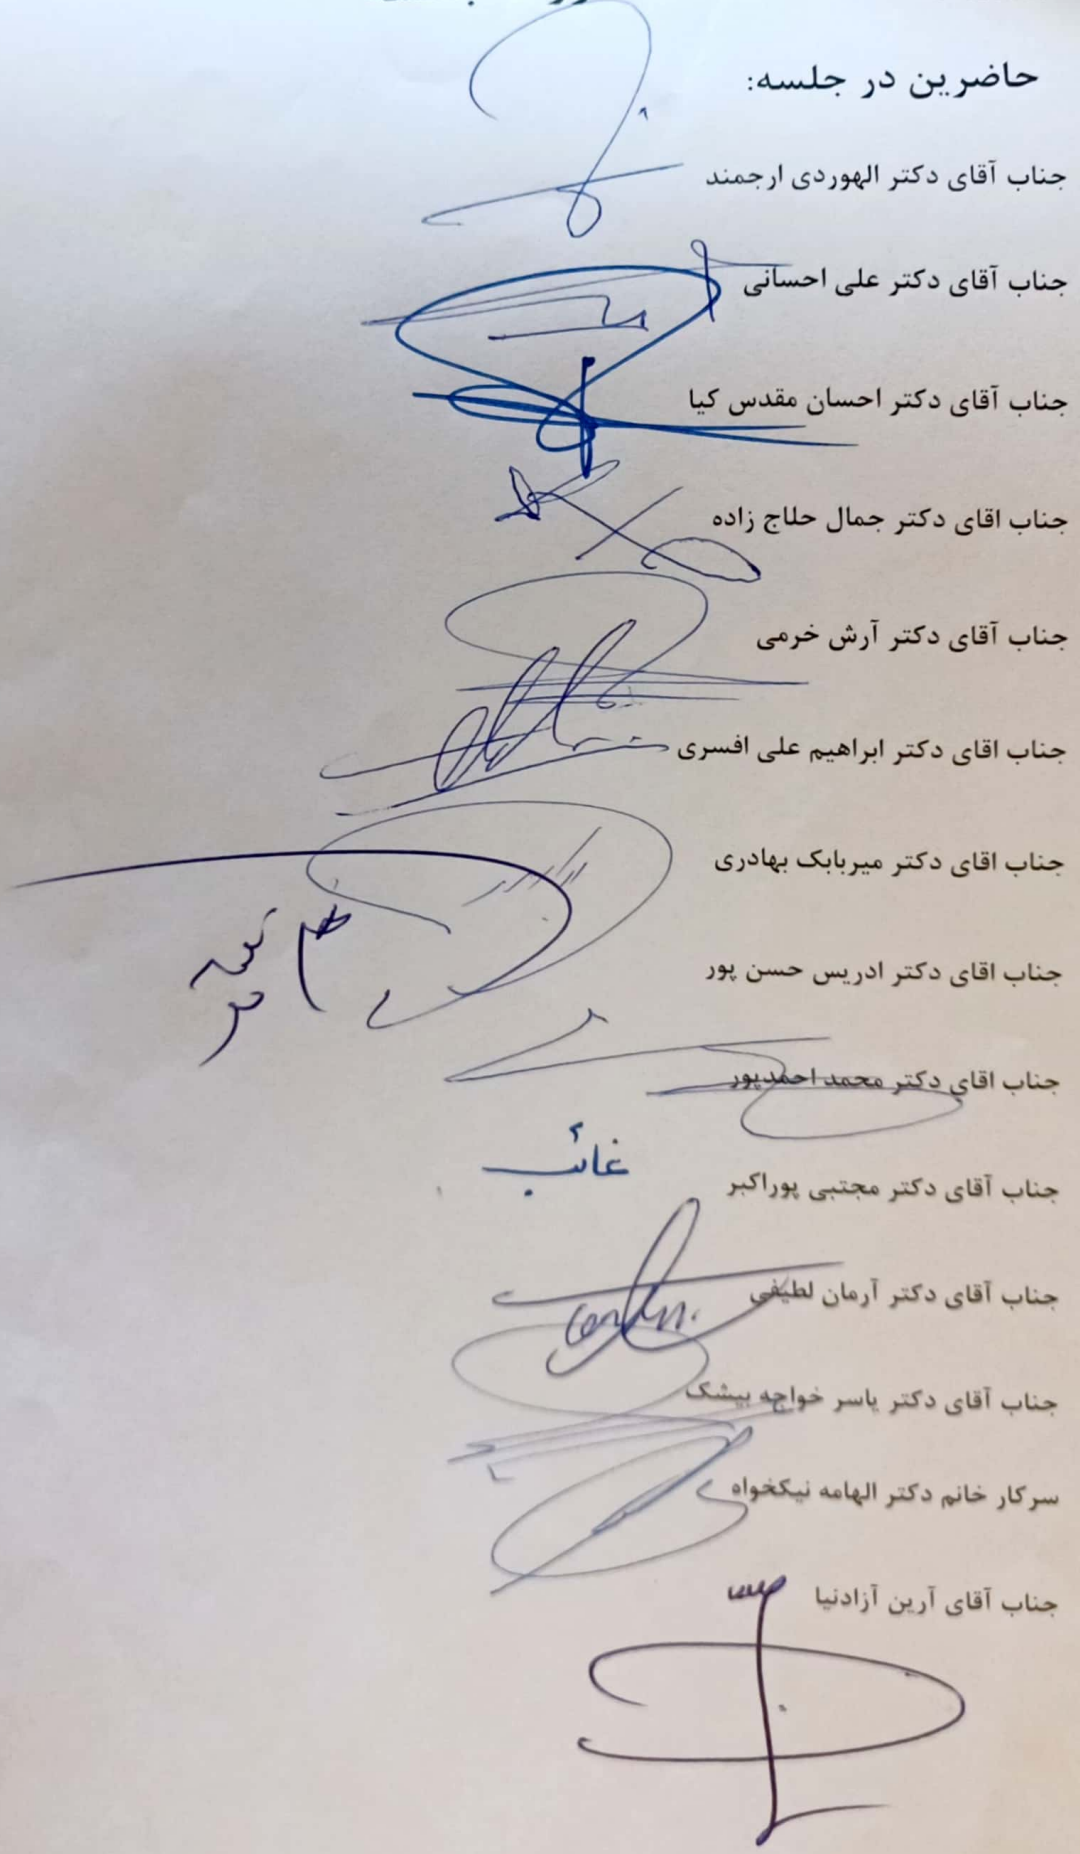 حاضرین در جلسه:
جناب آقای دکتر الهوردی ارجمند
جناب آقای دکتر علی احسانی
جناب آقای دکتر احسان مقدس کیا
جناب اقای دکتر جمال حلاج زاده
جناب آقای دکتر آرش خرمی
جناب اقای دکتر ابراهیم علی افسری
جناب اقای دکتر میربابک بهادری
جناب اقای دکتر ادریس حسن پور
جناب اقای دکتر محمد احمدپور
جناب آقای دکتر مجتبی پوراکبر
غائب
جناب آقای دکتر آرمان لطیفی
جناب آقای دکتر یاسر خواجه بیشک
سرکار خانم دکتر الهامه نیکخواه
جناب آقای آرین آزادنیا